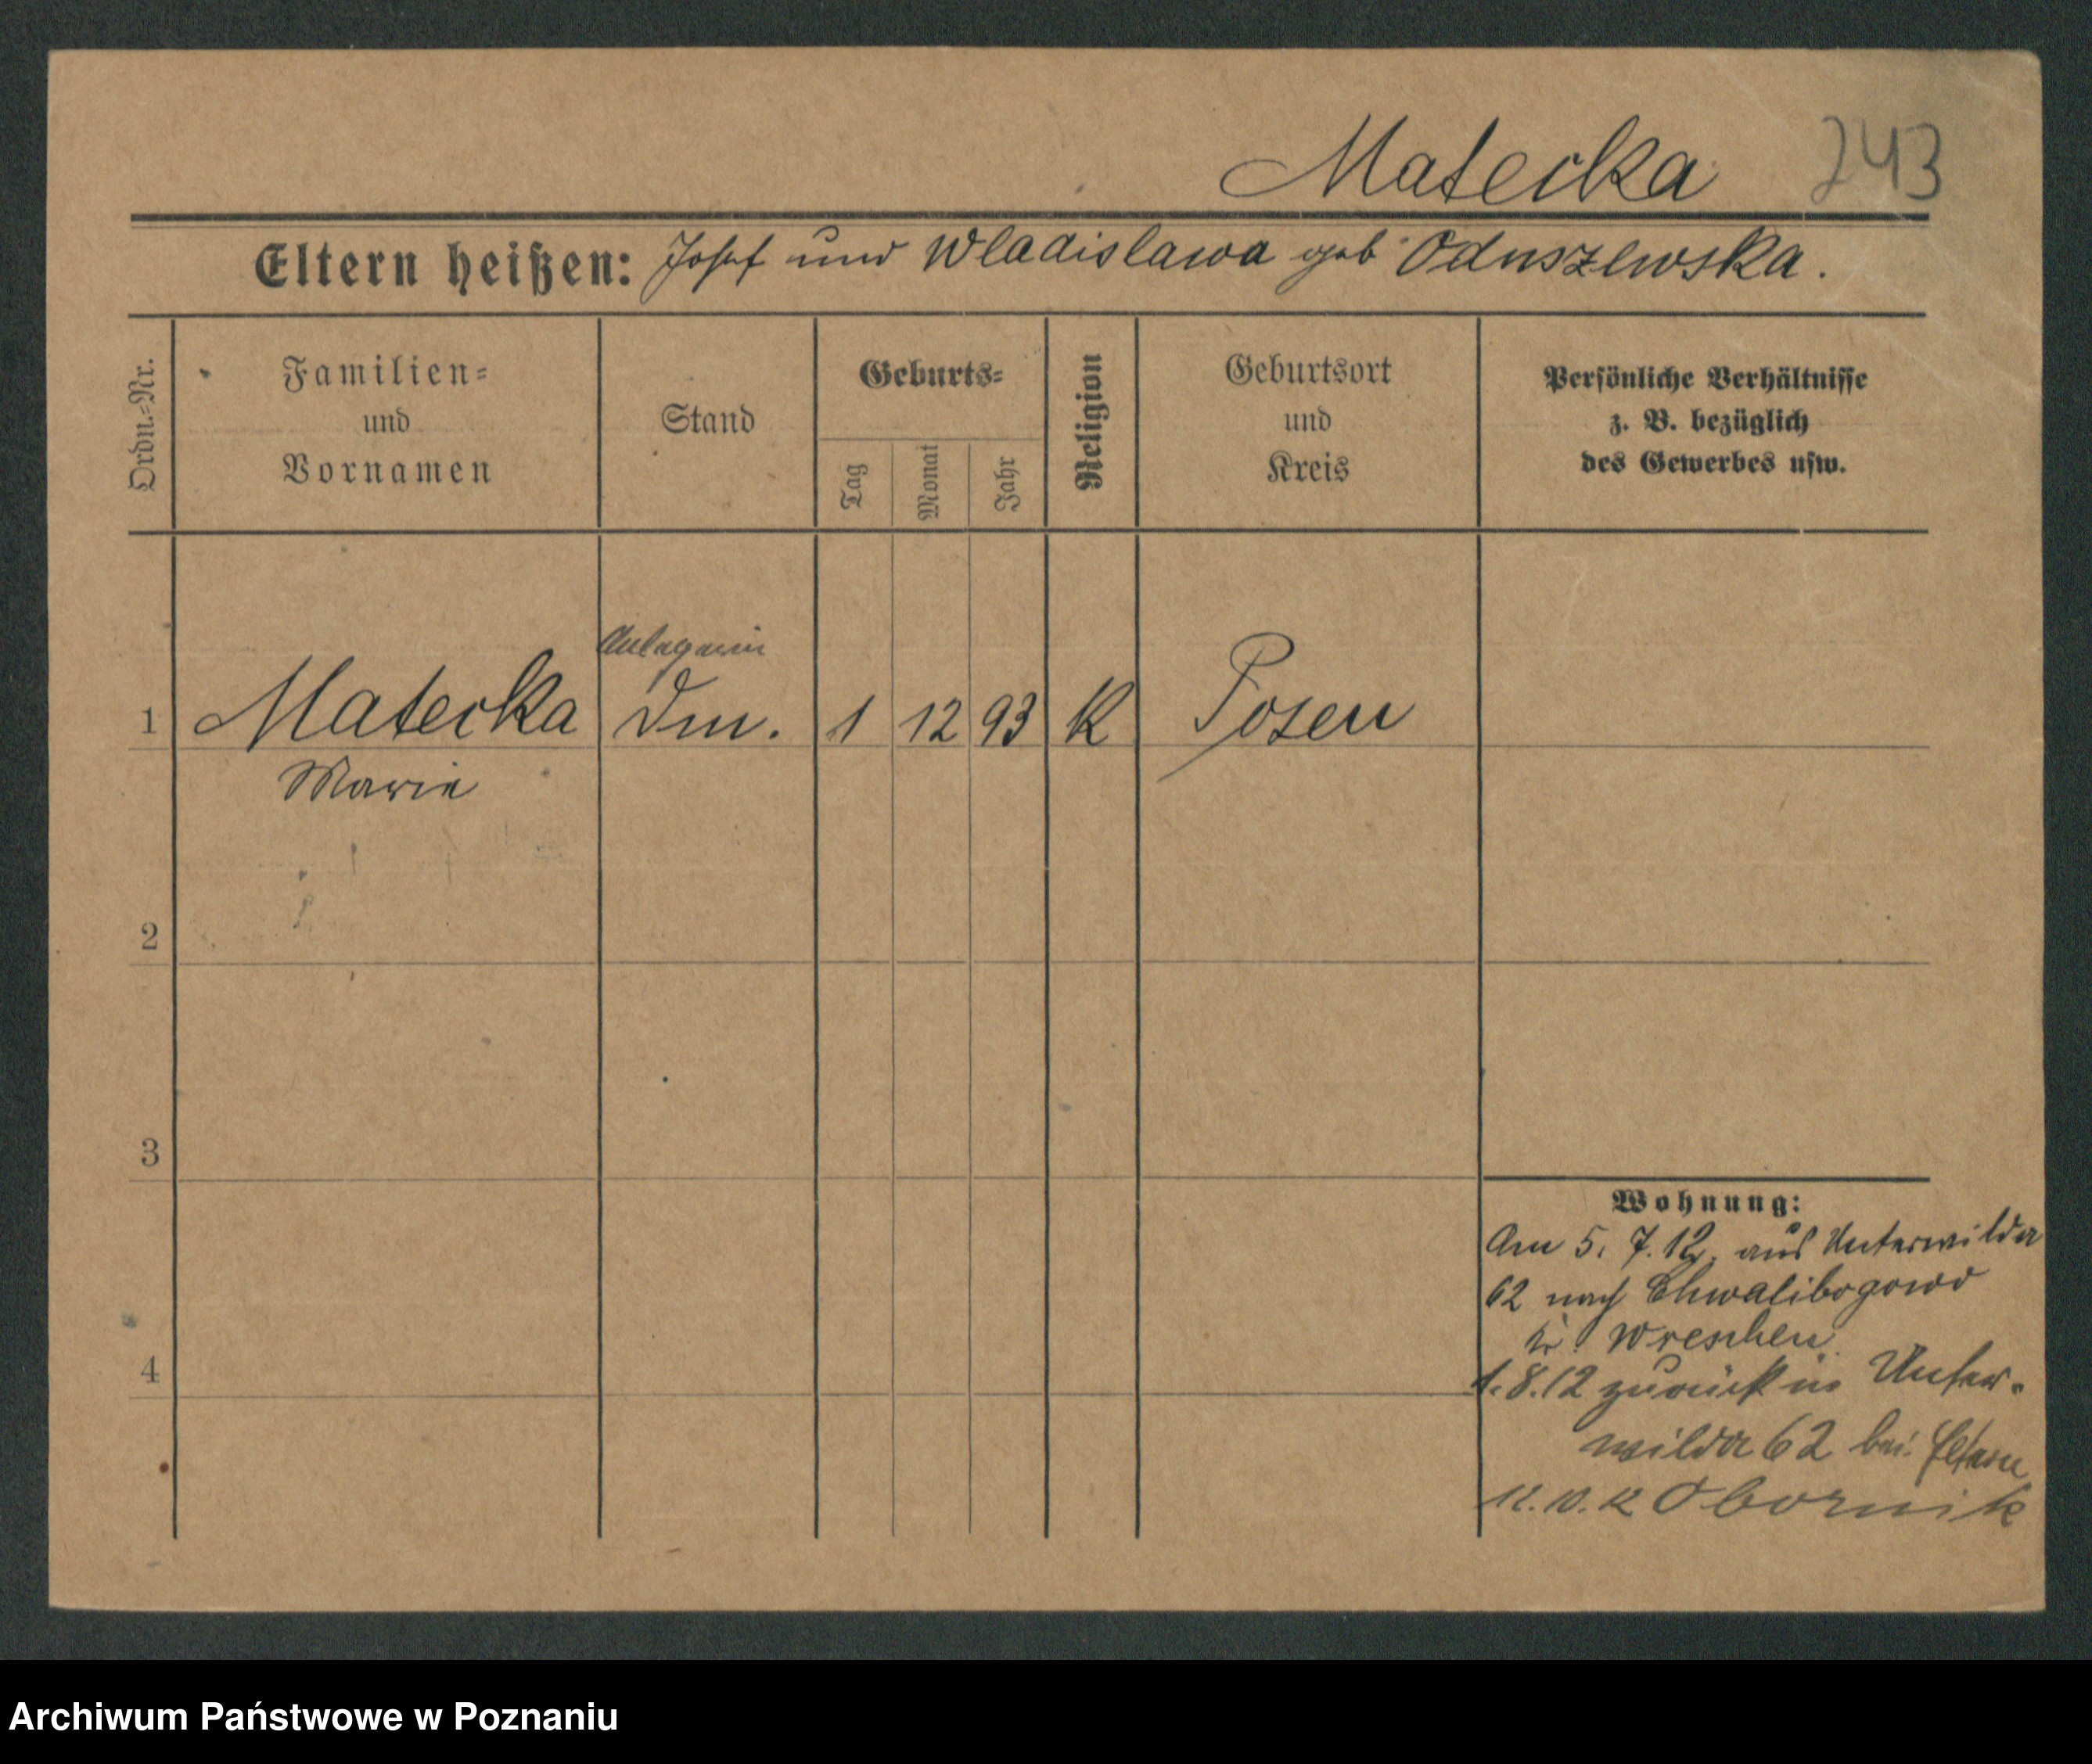 Matecka 243
Eltern heißen: Josef und Wladislawa geb Oduszewska.
Ordn.-Nr.
Familien- und Vornamen
Stand
Geburts-
Tag
Monat
Jahr
Religion
Geburtsort und Kreis
Persönliche Verhältnisse z. B. bezüglich des Gewerbes usw.
1 Matecka Dm. 1 12 93 K Posen
Marie
2
3
4
Wohnung:
Am 5. 7. 12. aus Unterwilda
62 nach Chwalibogowo
Kr. Wreschen.
1.8.12 zurück in Unter-
wilda 62 bei Eltern
12.10.12 Obornik
Archiwum Państwowe w Poznaniu